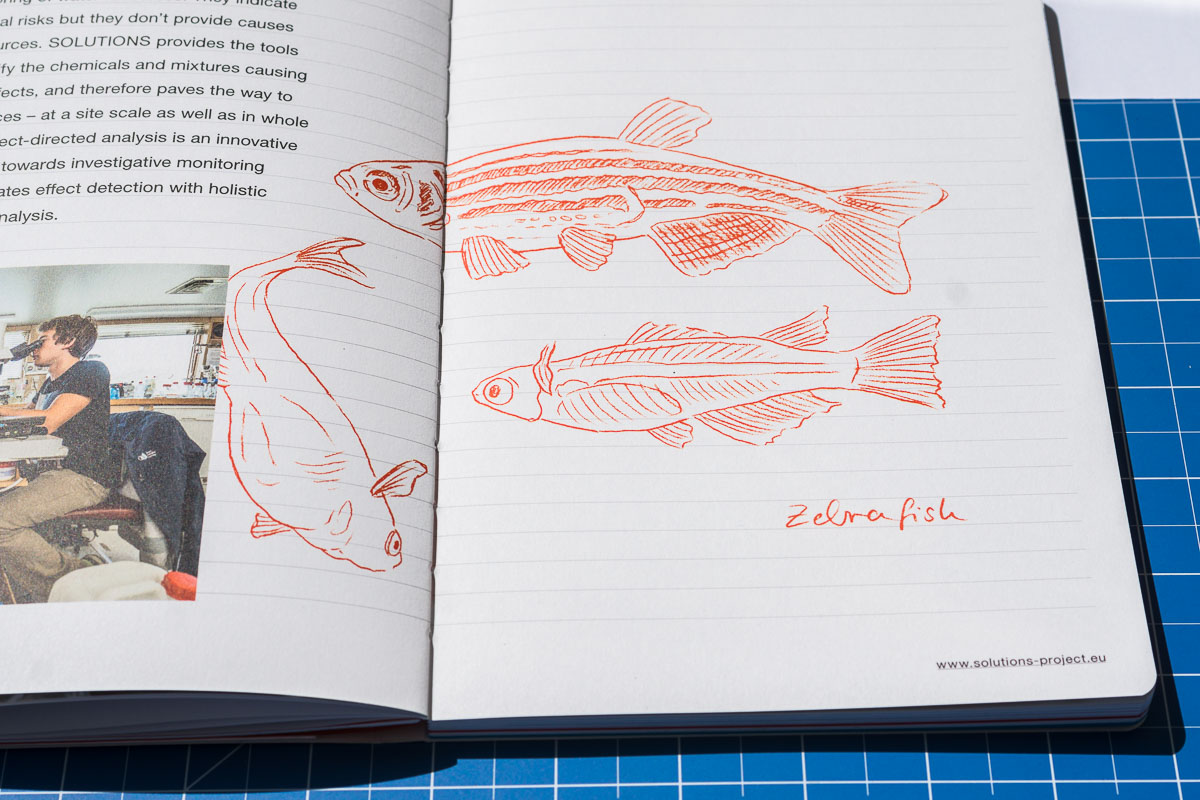 They indicate
al risks but they don't provide causes
urces. SOLUTIONS provides the tools
ify the chemicals and mixtures causing
fects, and therefore paves the way to
ces – at a site scale as well as in whole
ect-directed analysis is an innovative
towards investigative monitoring
ates effect detection with holistic
nalysis.
Zebrafish
www.solutions-project.eu